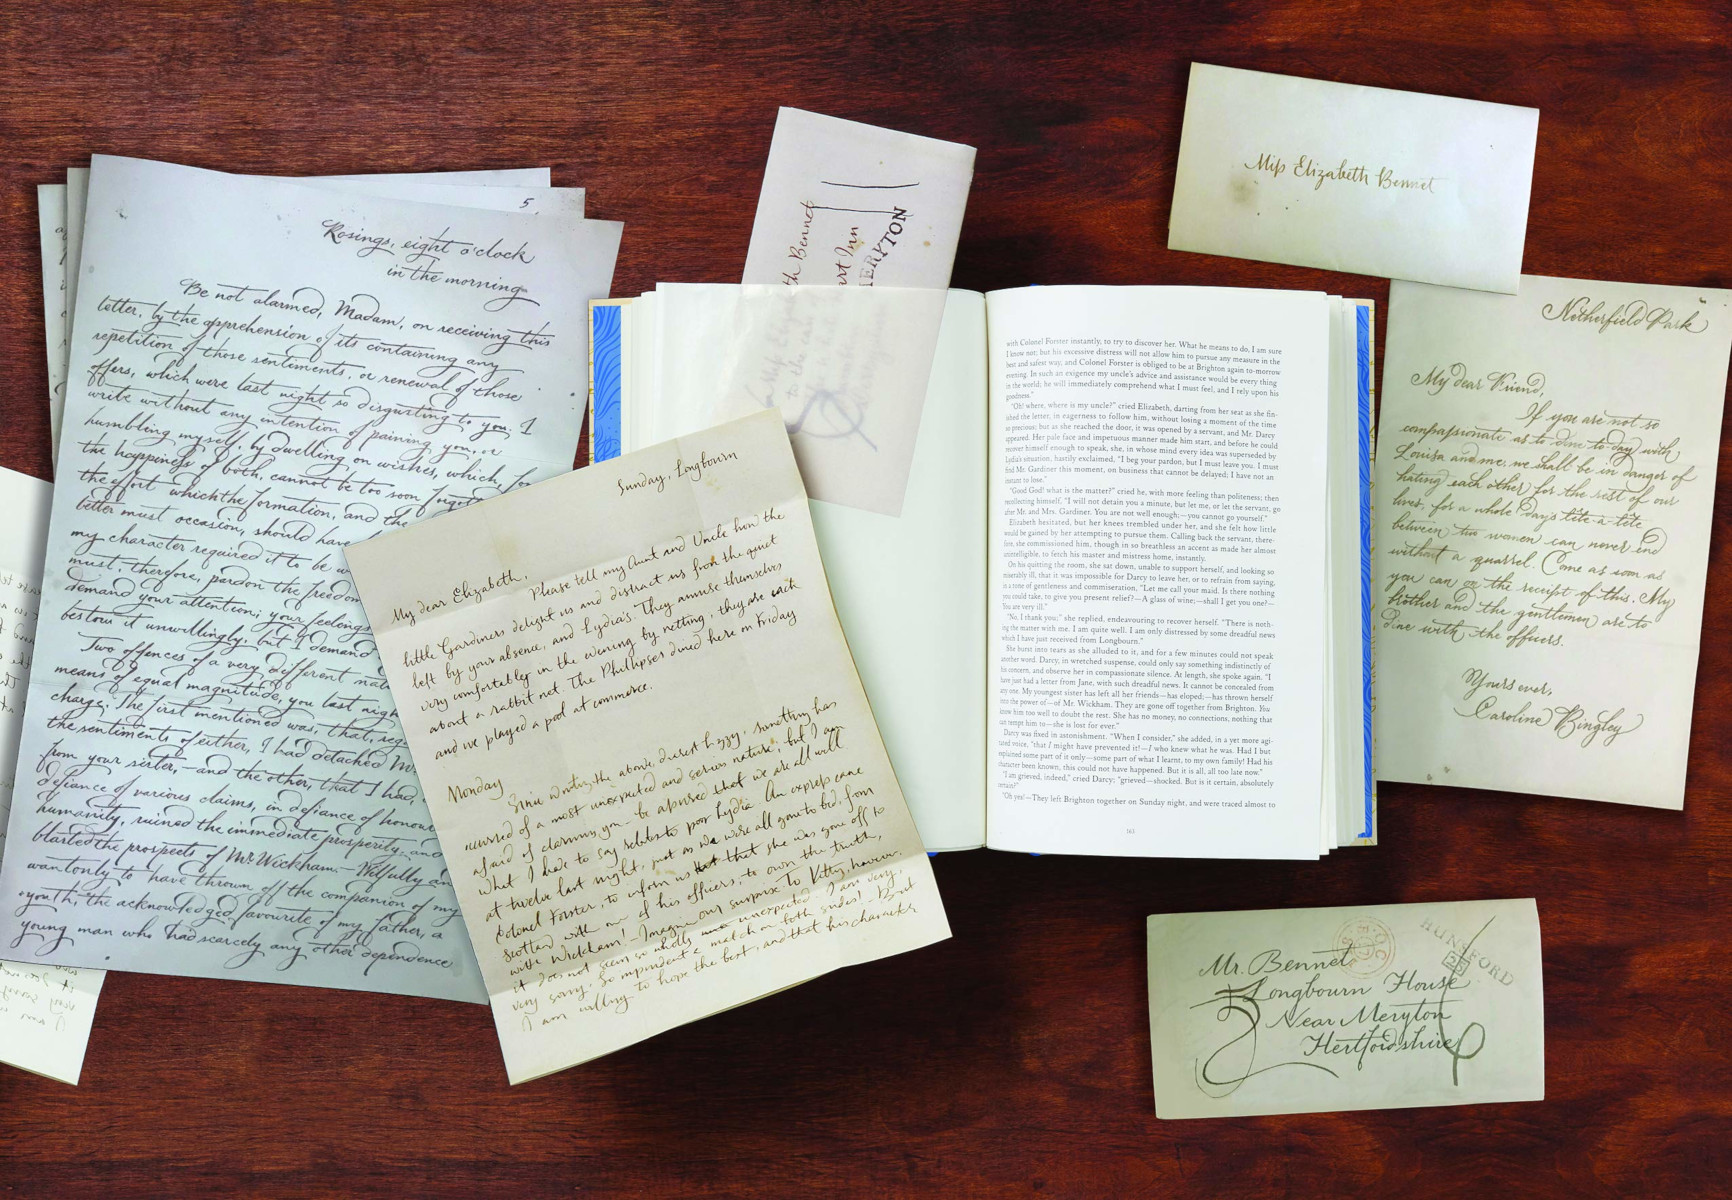 5.
Rosings, eight o'clock
in the morning
Be not alarmed, Madam, on receiving this
letter, by the apprehension of its containing any
repetition of those sentiments, or renewal of those
offers, which were last night so disgusting to you. I
write without any intention of paining you, or
humbling myself, by dwelling on wishes, which, for
the happiness of both, cannot be too soon forgott
the effort which the formation, and the
better must occasion, should have
my character required it to be w
must, therefore, pardon the freedom
demand your attention; your feelings
bestow it unwillingly, but I demand
Two offences of a very different nat
means of equal magnitude, you last nigh
charge. The first mentioned was, that, reg
the sentiments of either, I had detached Mr
from your sister, – and the other, that I had,
defiance of various claims, in defiance of honour
humanity, ruined the immediate prosperity, and
blasted the prospects of Mr. Wickham. – Wilfully an
wantonly to have thrown off the companion of my
youth, the acknowledged favourite of my father, a
young man who had scarcely any other dependence
Sunday, Longbourn
My dear Elizabeth,
Please tell my Aunt and Uncle how the
little Gardiners delight us and distract us from the quiet
left by your absence, and Lydia's. They amuse themselves
very comfortably in the evening by netting; they are each
about a rabbit net. The Phillipses dined here on Friday
and we played a pool at commerce.
Monday
Since writing the above, dearest Lizzy, something has
occurred of a most unexpected and serious nature; but I am
afraid of alarming you – be assured that we are all well.
What I have to say relates to poor Lydia. An express came
at twelve last night, just as we were all gone to bed, from
Colonel Forster, to inform us that she was gone off to
Scotland with one of his officers; to own the truth,
with Wickham! – Imagine our surprise. To Kitty, however,
it does not seem so wholly unexpected. I am very,
very sorry. So imprudent a match on both sides! – But
I am willing to hope the best, and that his character
th Bennet
art Inn
MERYTON
with Colonel Forster instantly, to try to discover her. What he means to do, I am sure
I know not; but his excessive distress will not allow him to pursue any measure in the
best and safest way, and Colonel Forster is obliged to be at Brighton again to-morrow
evening. In such an exigence my uncle's advice and assistance would be every thing
in the world; he will immediately comprehend what I must feel, and I rely upon his
goodness."
"Oh! where, where is my uncle?" cried Elizabeth, darting from her seat as she fin-
ished the letter, in eagerness to follow him, without losing a moment of the time
so precious; but as she reached the door, it was opened by a servant, and Mr. Darcy
appeared. Her pale face and impetuous manner made him start, and before he could
recover himself enough to speak, she, in whose mind every idea was superseded by
Lydia's situation, hastily exclaimed, "I beg your pardon, but I must leave you. I must
find Mr. Gardiner this moment, on business that cannot be delayed; I have not an
instant to lose."
"Good God! what is the matter?" cried he, with more feeling than politeness; then
recollecting himself, "I will not detain you a minute, but let me, or let the servant, go
after Mr. and Mrs. Gardiner. You are not well enough;—you cannot go yourself."
Elizabeth hesitated, but her knees trembled under her, and she felt how little
would be gained by her attempting to pursue them. Calling back the servant, there-
fore, she commissioned him, though in so breathless an accent as made her almost
unintelligible, to fetch his master and mistress home, instantly.
On his quitting the room, she sat down, unable to support herself, and looking so
miserably ill, that it was impossible for Darcy to leave her, or to refrain from saying,
in a tone of gentleness and commiseration, "Let me call your maid. Is there nothing
you could take, to give you present relief?—A glass of wine;—shall I get you one?—
You are very ill."
"No, I thank you;" she replied, endeavouring to recover herself. "There is noth-
ing the matter with me. I am quite well. I am only distressed by some dreadful news
which I have just received from Longbourn."
She burst into tears as she alluded to it, and for a few minutes could not speak
another word. Darcy, in wretched suspense, could only say something indistinctly of
his concern, and observe her in compassionate silence. At length, she spoke again. "I
have just had a letter from Jane, with such dreadful news. It cannot be concealed from
any one. My youngest sister has left all her friends—has eloped;—has thrown herself
into the power of—of Mr. Wickham. They are gone off together from Brighton. You
know him too well to doubt the rest. She has no money, no connections, nothing that
can tempt him to—she is lost for ever."
Darcy was fixed in astonishment. "When I consider," she added, in a yet more agi-
tated voice, "that I might have prevented it!—I who knew what he was. Had I but
explained some part of it only—some part of what I learnt, to my own family! Had his
character been known, this could not have happened. But it is all, all too late now."
"I am grieved, indeed," cried Darcy; "grieved—shocked. But is it certain, absolutely
certain?"
"Oh yes!—They left Brighton together on Sunday night, and were traced almost to
163
Miss Elizabeth Bennet
Netherfield Park
My dear Friend,
If you are not so
compassionate as to dine to-day with
Louisa and me, we shall be in danger of
hating each other for the rest of our
lives, for a whole day's tête-à-tête
between two women can never end
without a quarrel. Come as soon as
you can on the receipt of this. My
brother and the gentlemen are to
dine with the officers.
Yours ever,
Caroline Bingley
HUNSFORD
23
Mr. Bennet
Longbourn House
Near Meryton
Hertfordshire